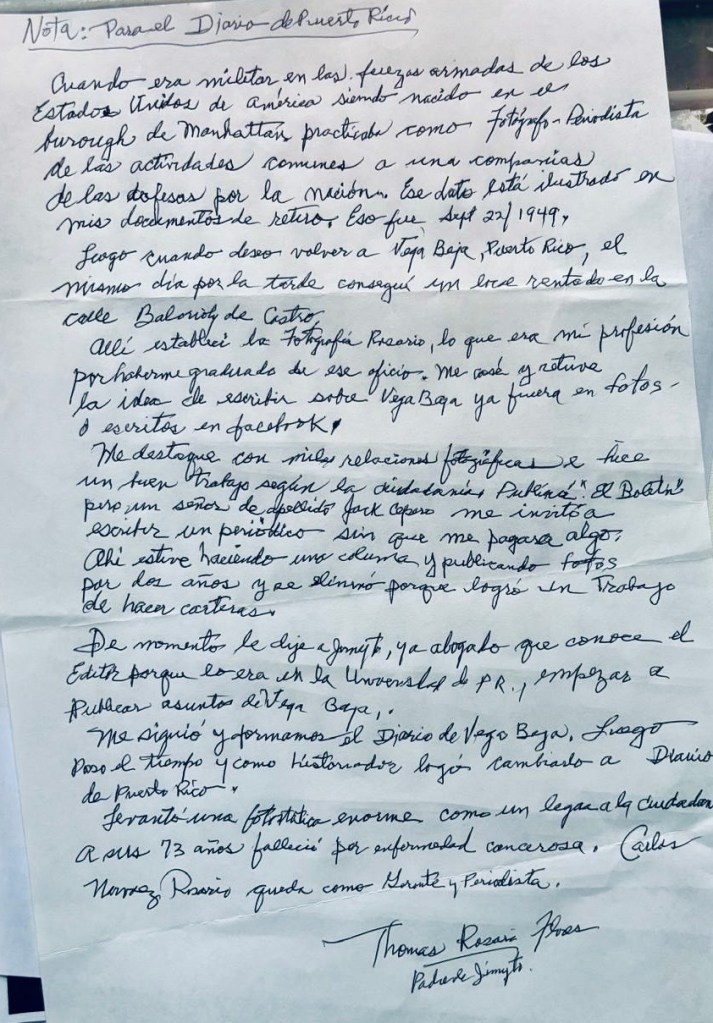 Nota: Para el Diario de Puerto Rico
Cuando era militar en las fuezas armadas de los
Estados Unidos de América siendo nacido en el
burough de Manhattan practicaba como Fotógrafo-Periodista
de las actividades comunes a una companias
de las defesas por la nación. Ese dato está ilustrado en
mis documentos de retiro. Eso fue Sept 22/1949.
Luego cuando deseo volver a Vega Baja, Puerto Rico, el
mismo día por la tarde conseguí un local rentado en la
calle Baldorioty de Castro.
Allí establecí la Fotografía Rosario, lo que era mi profesión
por haberme graduado de ese oficio. Me casé y retuve
la idea de escribir sobre Vega Baja ya fuera en fotos
o escritos en facebook.
Me destaque con miles relaciones fotográficas e hice
un buen trabajo según la ciudadanía. "El Boletín"
pero un señor de apellido Jack me invitó a
escribir un periódico sin que me pagara algo.
Ahí estuve haciendo una columa y publicando fotos
por dos años y se porque logró un Trabajo
de hacer carteras.
De momento le dije a Jimyto, ya abogado que conoce el
Editor porque lo era en la Universidad de P.R., empezar a
Publicar asuntos de Vega Baja,.
Me siguió y formamos el Diario de Vega Baja. Luego
Paso el tiempo y como historiador logó cambiarlo a Diario
de Puerto Rico.
Levantó una fotostática enorme como un legao a la ciudadan
A sus 73 años falleció por enfermedad cancerosa. Carlos
Rosario queda como Gerente y Periodista.
Thomas Rosario Flores
Padre de Jimyto.